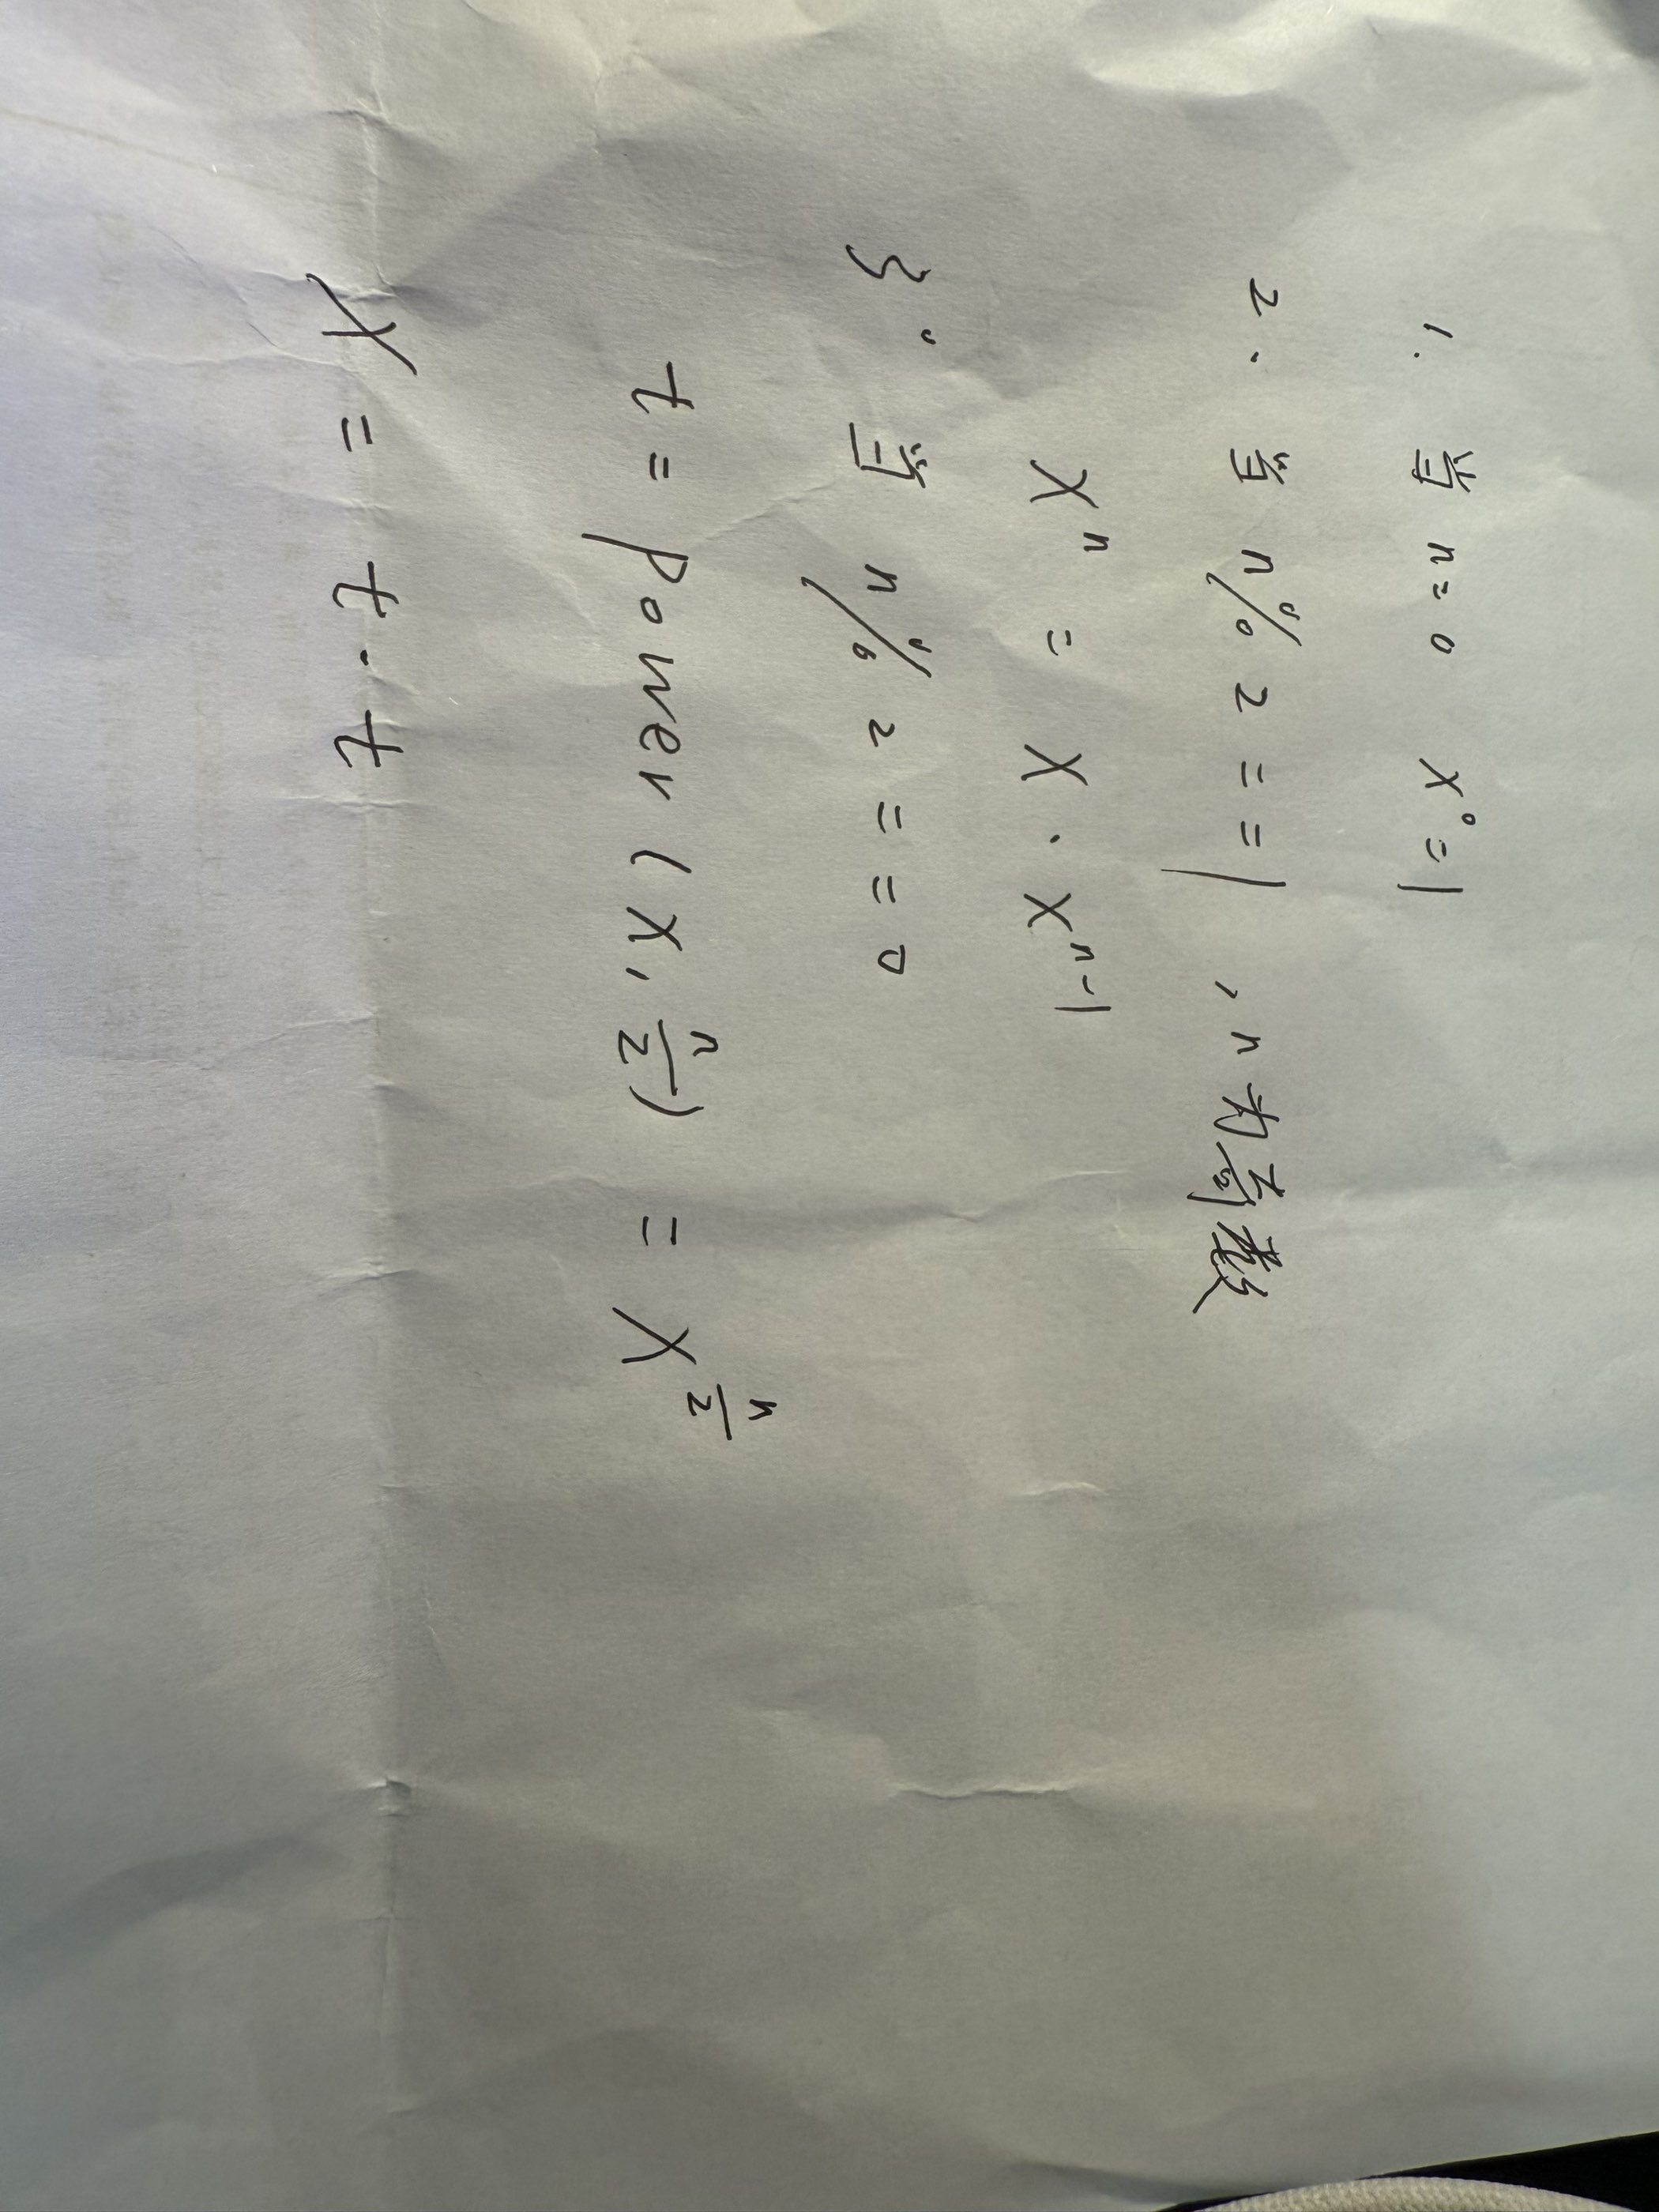 1. 当 n=0 x⁰=1
2. 当 n%2==1 , n为奇数
xⁿ = x · xⁿ⁻¹
3. 当 n%2==0
t = power(x, n/2) = x^(n/2)
x = t·t